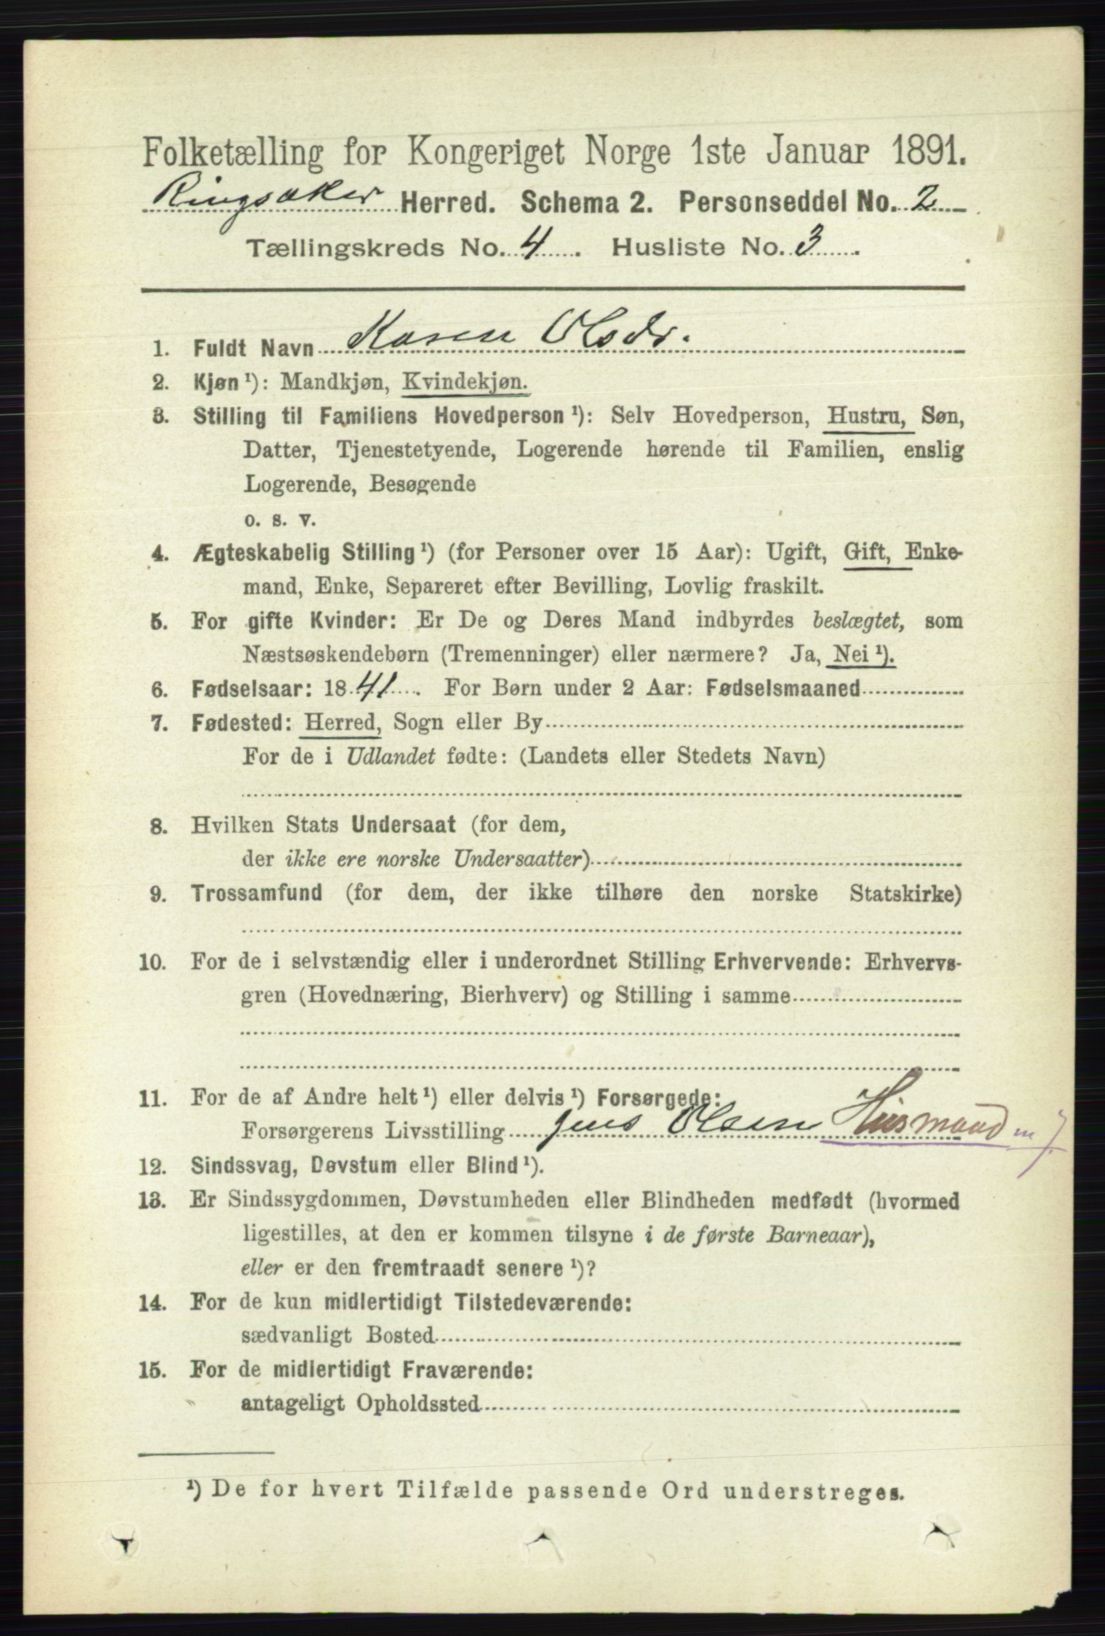 Folketælling for Kongeriget Norge 1ste Januar 1891.
Ringsaker Herred. Schema 2. Personseddel No. 2
Tællingskreds No. 4. Husliste No. 3.
1. Fuldt Navn Karen Olsdr.
2. Kjøn ¹): Mandkjøn, Kvindekjøn.
3. Stilling til Familiens Hovedperson ¹): Selv Hovedperson, Hustru, Søn,
Datter, Tjenestetyende, Logerende hørende til Familien, enslig
Logerende, Besøgende
o. s. v.
4. Ægteskabelig Stilling ¹) (for Personer over 15 Aar): Ugift, Gift, Enke-
mand, Enke, Separeret efter Bevilling, Lovlig fraskilt.
5. For gifte Kvinder: Er De og Deres Mand indbyrdes beslægtet, som
Næstsøskendebørn (Tremenninger) eller nærmere? Ja, Nei ¹).
6. Fødselsaar: 1841. For Børn under 2 Aar: Fødselsmaaned
7. Fødested: Herred, Sogn eller By
For de i Udlandet fødte: (Landets eller Stedets Navn)
8. Hvilken Stats Undersaat (for dem,
der ikke ere norske Undersaatter)
9. Trossamfund (for dem, der ikke tilhøre den norske Statskirke)
10. For de i selvstændig eller i underordnet Stilling Erhvervende: Erhvervs-
gren (Hovednæring, Bierhverv) og Stilling i samme
11. For de af Andre helt ¹) eller delvis ¹) Forsørgede:
Forsørgerens Livsstilling Jens Olsen Husmand m J
12. Sindssvag, Døvstum eller Blind ¹).
13. Er Sindssygdommen, Døvstumheden eller Blindheden medfødt (hvormed
ligestilles, at den er kommen tilsyne i de første Barneaar),
eller er den fremtraadt senere ¹)?
14. For de kun midlertidigt Tilstedeværende:
sædvanligt Bosted
15. For de midlertidigt Fraværende:
antageligt Opholdssted
¹) De for hvert Tilfælde passende Ord understreges.